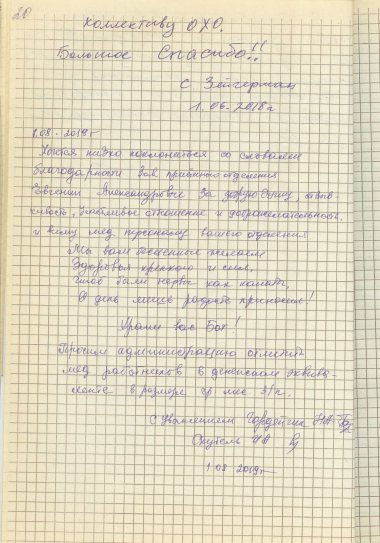 20
Коллективу ОХО.
Большое Спасибо!!
с Зейгерман
1.06-2018г
1.08-2019г
Хотся низко поклониться со словами
благодарности Зав приёмного отделения
Евгении Александровне За добрую душу, отзыв
чивость, Учавливое отношение и доброжелательность,
и всему мед. персоналу вашего отделения
Мы вам душевно желаем
Здоровья крепкого и сил,
чтоб были нервы как канаты,
А день лишь радость приносил!
Храни вас Бог!
Просим администрацию отметить
мед работников в денежном эквива-
ленте в размере 3/п.
с Уважением Гордейчик НА
НА
1.08 2019г